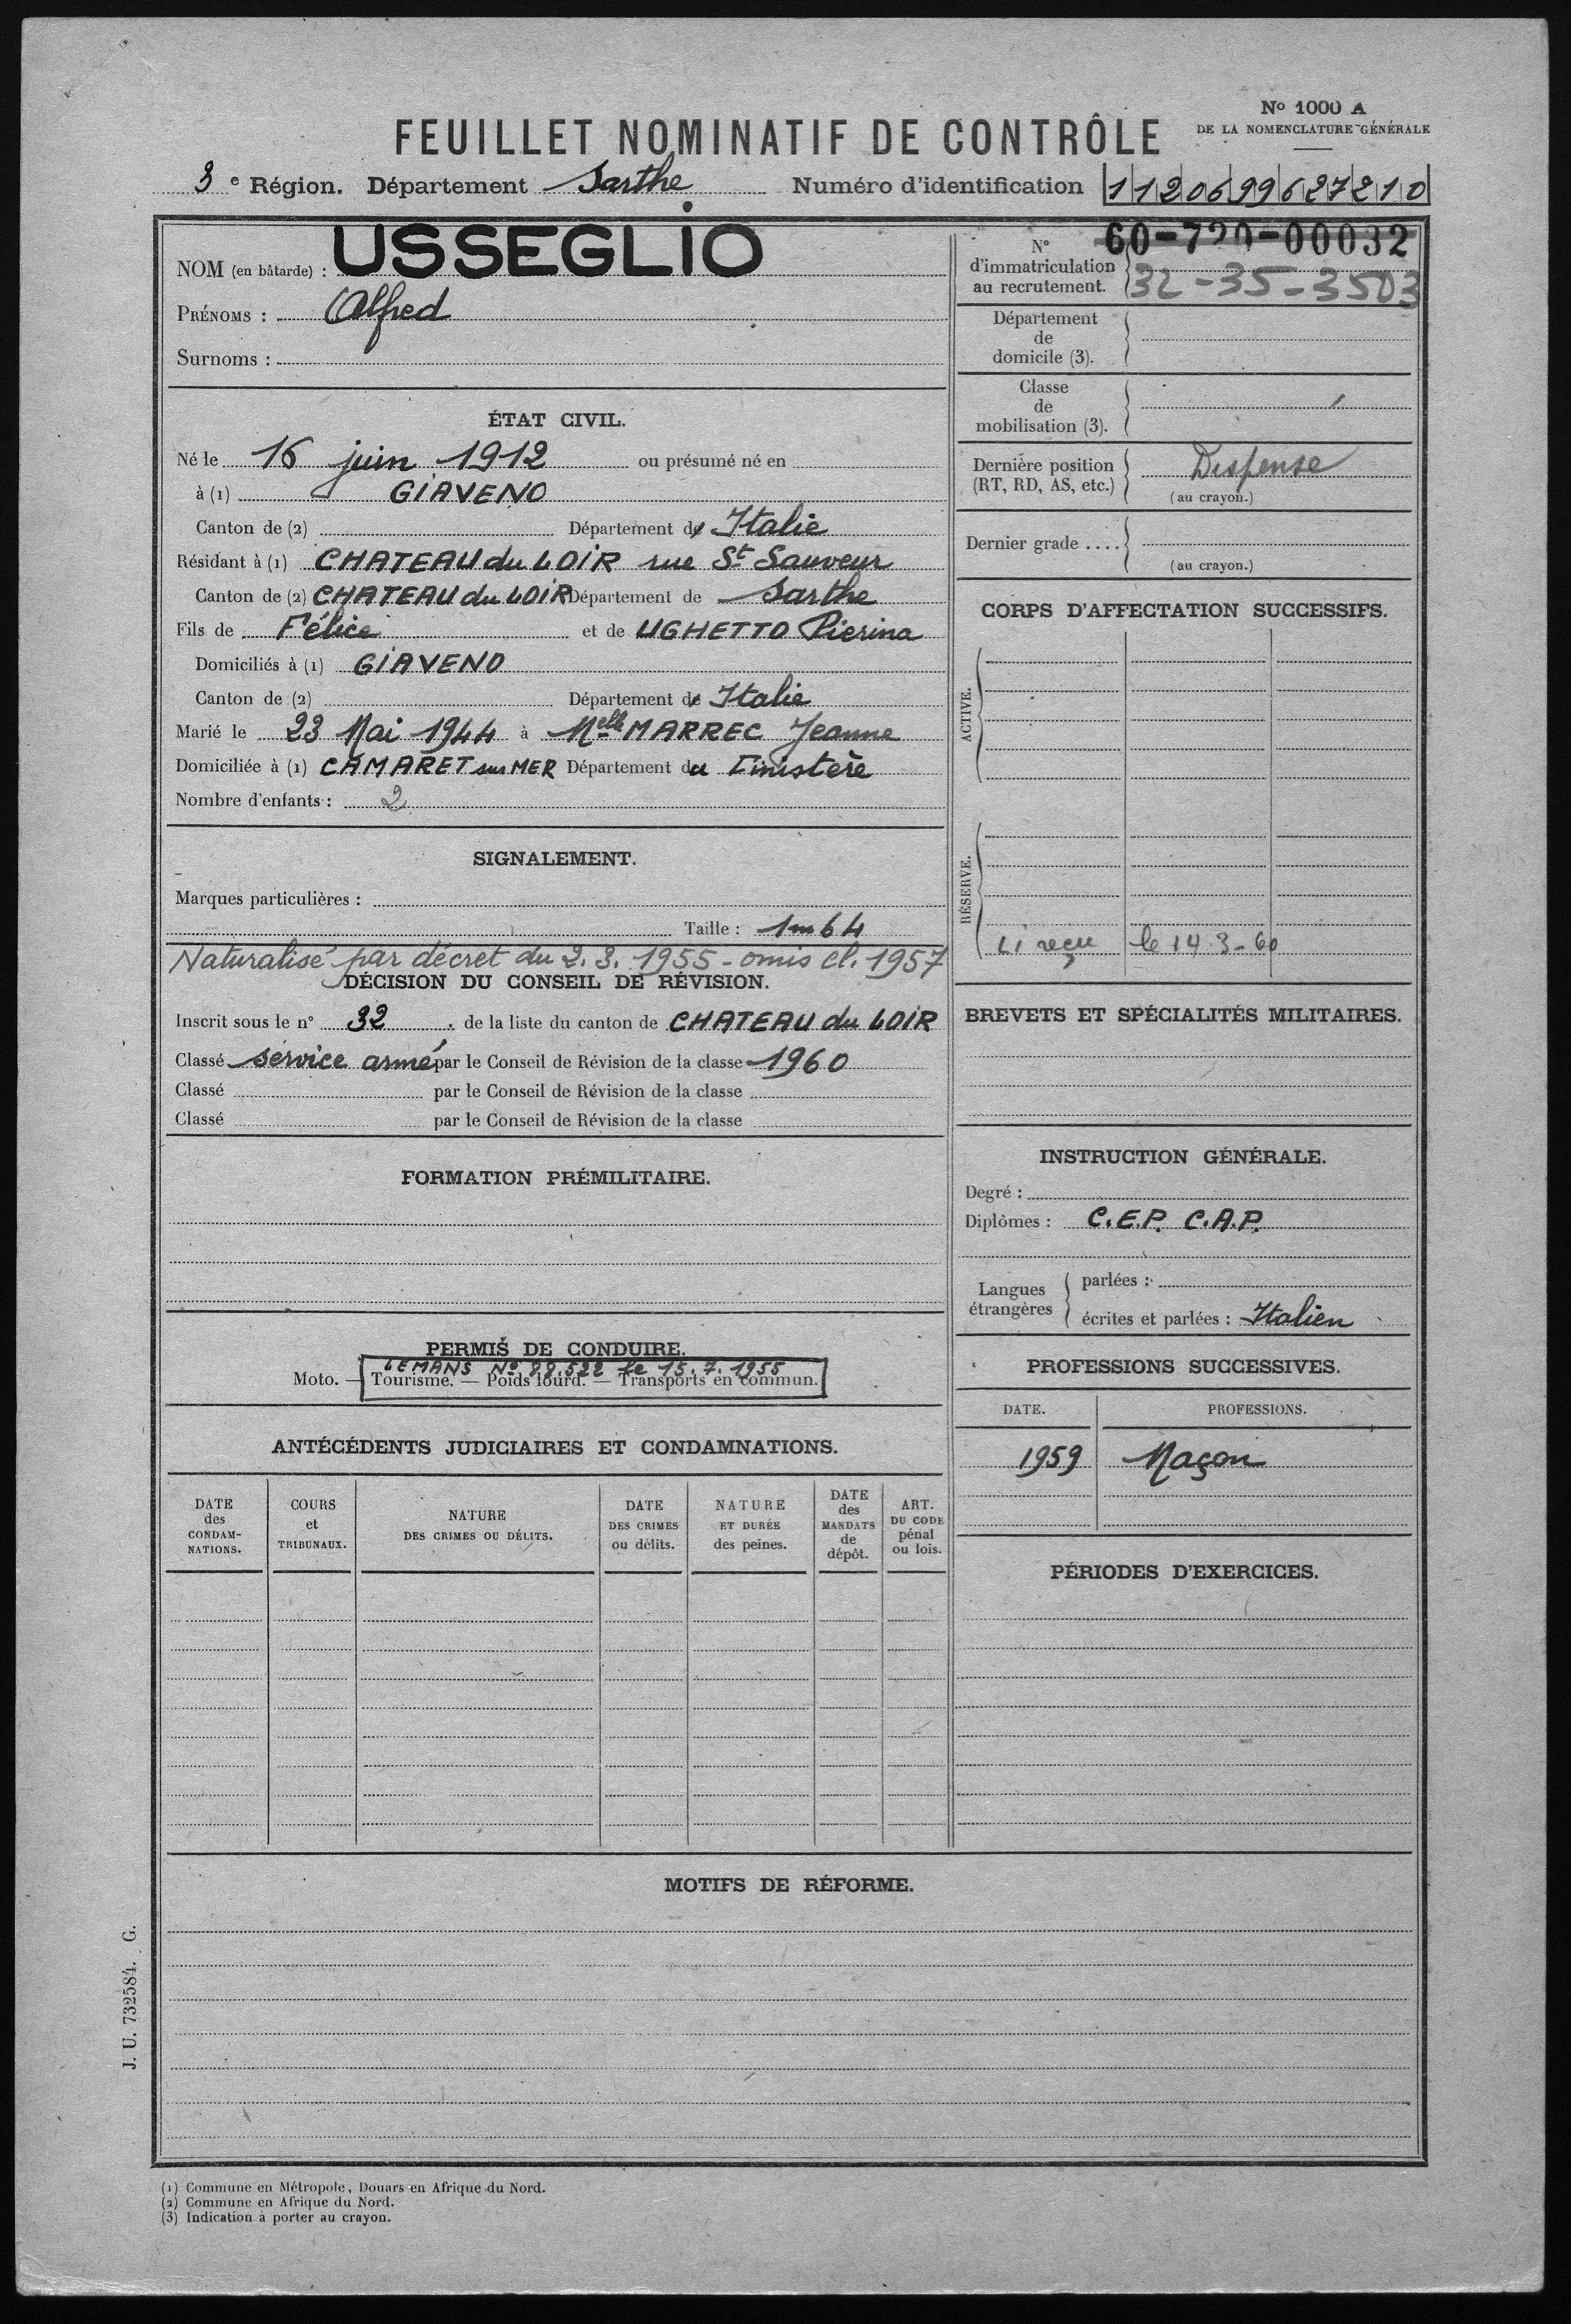 No 1000 A
DE LA NOMENCLATURE GÉNÉRALE
FEUILLET NOMINATIF DE CONTRÔLE
3e Région. Département Sarthe Numéro d'identification 1120699627210
NOM (en bâtarde) : USSEGLIO
PRÉNOMS : Alfred
Surnoms :
ÉTAT CIVIL.
Né le 16 juin 1912 ou présumé né en
à (1) GIAVENO
Canton de (2) Département de Italie
Résidant à (1) CHATEAU du LOIR rue St Sauveur
Canton de (2) CHATEAU du LOIR Département de Sarthe
Fils de Félice et de UGHETTO Pierina
Domiciliés à (1) GIAVENO
Canton de (2) Département de Italie
Marié le 23 Mai 1944 à Melle MARREC Jeanne
Domiciliée à (1) CAMARET sur MER Département du Finistère
Nombre d'enfants : 2
SIGNALEMENT.
Marques particulières :
Taille : 1m64
Naturalisé par décret du 2.3.1955 - omis cl. 1957
DÉCISION DU CONSEIL DE RÉVISION.
Inscrit sous le n° 32 de la liste du canton de CHATEAU du LOIR
Classé service armé par le Conseil de Révision de la classe 1960
Classé par le Conseil de Révision de la classe
Classé par le Conseil de Révision de la classe
FORMATION PRÉMILITAIRE.
PERMIS DE CONDUIRE.
LE MANS No 88.522 le 15.7.1955
Moto. — Tourisme. — Poids lourd. — Transports en commun.
ANTÉCÉDENTS JUDICIAIRES ET CONDAMNATIONS.
DATE des CONDAMNATIONS.
COURS et TRIBUNAUX.
NATURE DES CRIMES OU DÉLITS.
DATE DES CRIMES ou délits.
NATURE ET DURÉE des peines.
DATE des MANDATS de dépôt.
ART. DU CODE pénal ou lois.
N° d'immatriculation au recrutement. 60-720-00032
32-35-3503
Département de domicile (3).
Classe de mobilisation (3).
Dernière position (RT, RD, AS, etc.) Dispense
(au crayon.)
Dernier grade ....
(au crayon.)
CORPS D'AFFECTATION SUCCESSIFS.
ACTIVE.
RÉSERVE.
LI reçu le 14.3-60
BREVETS ET SPÉCIALITÉS MILITAIRES.
INSTRUCTION GÉNÉRALE.
Degré :
Diplômes : C.E.P. C.A.P.
Langues étrangères
parlées :
écrites et parlées : Italien
PROFESSIONS SUCCESSIVES.
DATE. PROFESSIONS.
1959 Maçon
PÉRIODES D'EXERCICES.
MOTIFS DE RÉFORME.
J. U. 732584. G.
(1) Commune en Métropole, Douars en Afrique du Nord.
(2) Commune en Afrique du Nord.
(3) Indication à porter au crayon.